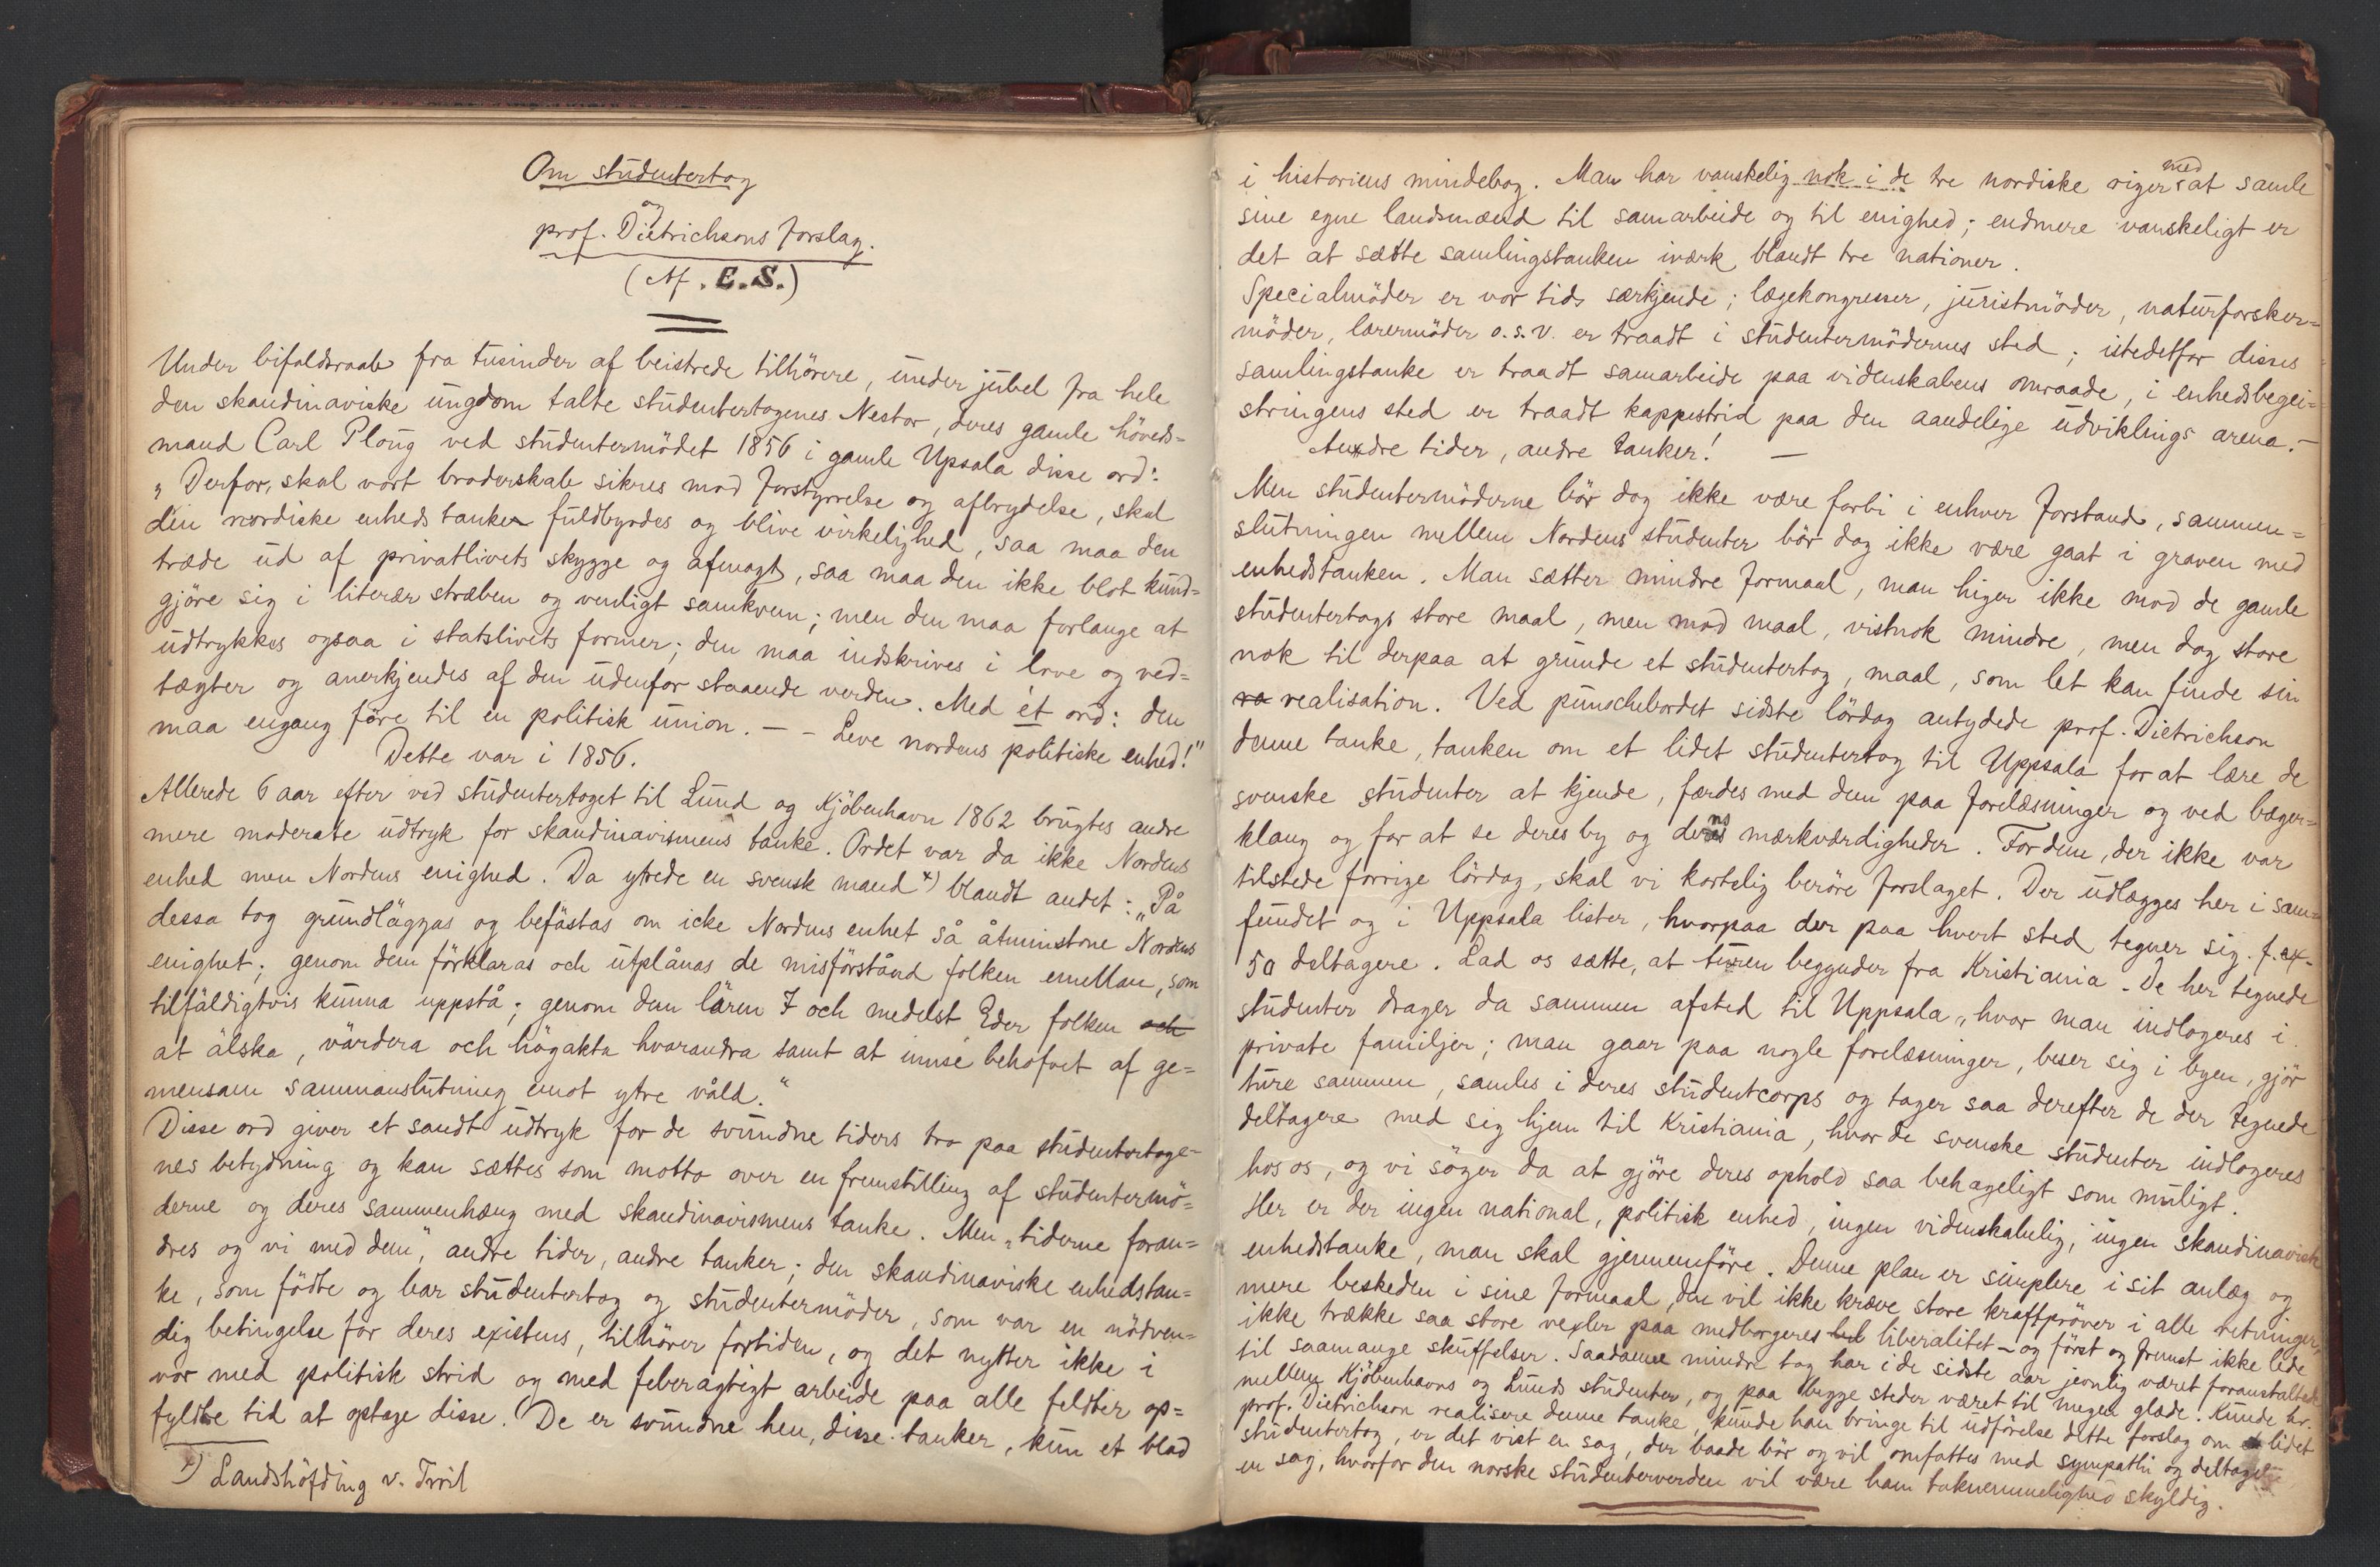 Om studentertog
og
prof. Dietrichsons forslag.
(Af. E.S.)
Under bifaldsraab fra tusinder af beistrede tilhörere, under jubel fra hele
den skandinaviske ungdom talte studentertogenes Nestor, deres gamle höveds=
mand Carl Ploug ved studentermödet 1856 i gamle Upsala disse ord:
„Derfor, skal vort broderskab sikres mod forstyrrelse og afbrydelse, skal
den nordiske enheds tanke fuldbyrdes og blive virkelighed, saa maa den
træde ud af privatlivets skygge og afmagt, saa maa den ikke blot kund=
gjöre sig i literær stræben og venligt samkvem; men den maa forlange at
udtrykkes ogsaa i statslivets former; den maa indskrives i love og ved=
tægter og anerkjendes af den udenfor staaende verden. Med ét ord: den
maa engang före til en politisk union. – – Leve nordens politiske enhed!"
Dette var i 1856.
Allerede 6 aar efter ved studentertoget til Lund og Kjöbenhavn 1862 brugtes andre
mere moderate udtryk for skandinavismens tanke. Ordet var da ikke Nordens
enhed men Nordens enighed. Da ytrede en svensk mand x) blandt andet: „På
dessa tog grundläggas og befästas om icke Nordens enhet så åtminstone Nordens
enighet; genom dem förklaras och utplånas de misförstånd folken emellan, som
tilfäldigtvis kunna uppstå; genom dem lären I och medelst Eder folken och
at älska, värdera och högakta hvarandra samt at innse behofvet af ge=
mensam sammanslutning emot ytre våld."
Disse ord giver et sandt udtryk for de svundne tiders tro paa studentertoge=
nes betydning og kan sættes som motto over en fremstilling af studentermö=
derne og deres sammenhæng med skandinavismens tanke. Men „tiderne foran=
dres og vi med dem", andre tider, andre tanker; den skandinaviske enhedstan=
ke, som födte og bar studentertog og studentermöder, som var en nödven=
dig betingelse for deres existens, tilhörer fortiden, og det nytter ikke i
vor med politisk strid og med feberagtigt arbeide paa alle feldter op=
fyldte tid at optage disse. De er svundne hen, disse tanker, kun et blad
x) Landshöfding v. Troil
i historiens mindebog. Man har vanskelig nok i de tre nordiske riger med at samle
sine egne landsmænd til samarbeide og til enighed; endmere vanskeligt er
det at sætte samlingstanken iværk blandt tre nationer.
Specialmöder er vor tids særkjende; lægekongresser, juristmöder, naturforsker=
möder, lærermöder o.s.v. er traadt i studentermödernes sted; istedetfor disses
samlingstanke er traadt samarbeide paa videnskabens omraade, i enhedsbegei=
stringens sted er traadt kappestrid paa den aandelige udviklings arena. –
Andre tider, andre tanker! –
Men studentermöderne bör dog ikke være forbi i enhver forstand, sammen=
slutningen mellem Nordens studenter bör dog ikke være gaat i graven med
enhedstanken. Man sætter mindre formaal, man higer ikke mod de gamle
studentertogs store maal, men mod maal, vistnok mindre, men dog store
nok til derpaa at grunde et studentertog, maal, som let kan finde sin
ra realisation. Ved punschebordet sidste lördag antydede prof. Dietrichson
denne tanke, tanken om et lidet studentertog til Uppsala for at lære de
svenske studenter at kjende, færdes med dem paa forelæsninger og ved bæger=
klang og for at se deres by og dens mærkværdigheder. For dem, der ikke var
tilstede forrige lördag, skal vi kortelig beröre forslaget. Der udlægges her i sam=
fundet og i Uppsala lister, hvorpaa der paa hvert sted tegner sig f. ex.
50 deltagere. Lad os sætte, at turen begynder fra Kristiania. De her tegnede
studenter drager da sammen afsted til Uppsala, hvor man indlogeres i
private familjer; man gaar paa nogle forelæsninger, beser sig i byen, gjör
ture sammen, samles i deres studentcorps og tager saa derefter de der tegnede
deltagere med sig hjem til Kristiania, hvor de svenske studenter indlogeres
hos os, og vi söger da at gjöre deres ophold saa behageligt som muligt.
Her er der ingen national, politisk enhed, ingen videnskabelig, ingen skandinavisk
enhedstanke, man skal gjennemföre. Denne plan er simplere i sit anlæg og
mere beskeden i sine formaal, den vil ikke kræve store kraftpröver i alle retninger,
ikke trække saa store vexler paa medborgeres lib liberalitet – og först og fremst ikke lede
til saamange skuffelser. Saadanne mindre tog har i de sidste aar jevnlig været foranstaltede
mellem Kjöbenhavns og Lunds studenter, og paa begge steder været til megen glæde. Kunde hr.
prof. Dietrichson realisere denne tanke, kunde han bringe til udförelse dette forslag om et lidet
studentertog, er det vist en sag, der baade bör og vil omfattes med sympathi og deltagelse
en sag, hvorfor den norske studenterverden vil være ham taknemmelighed skyldig.